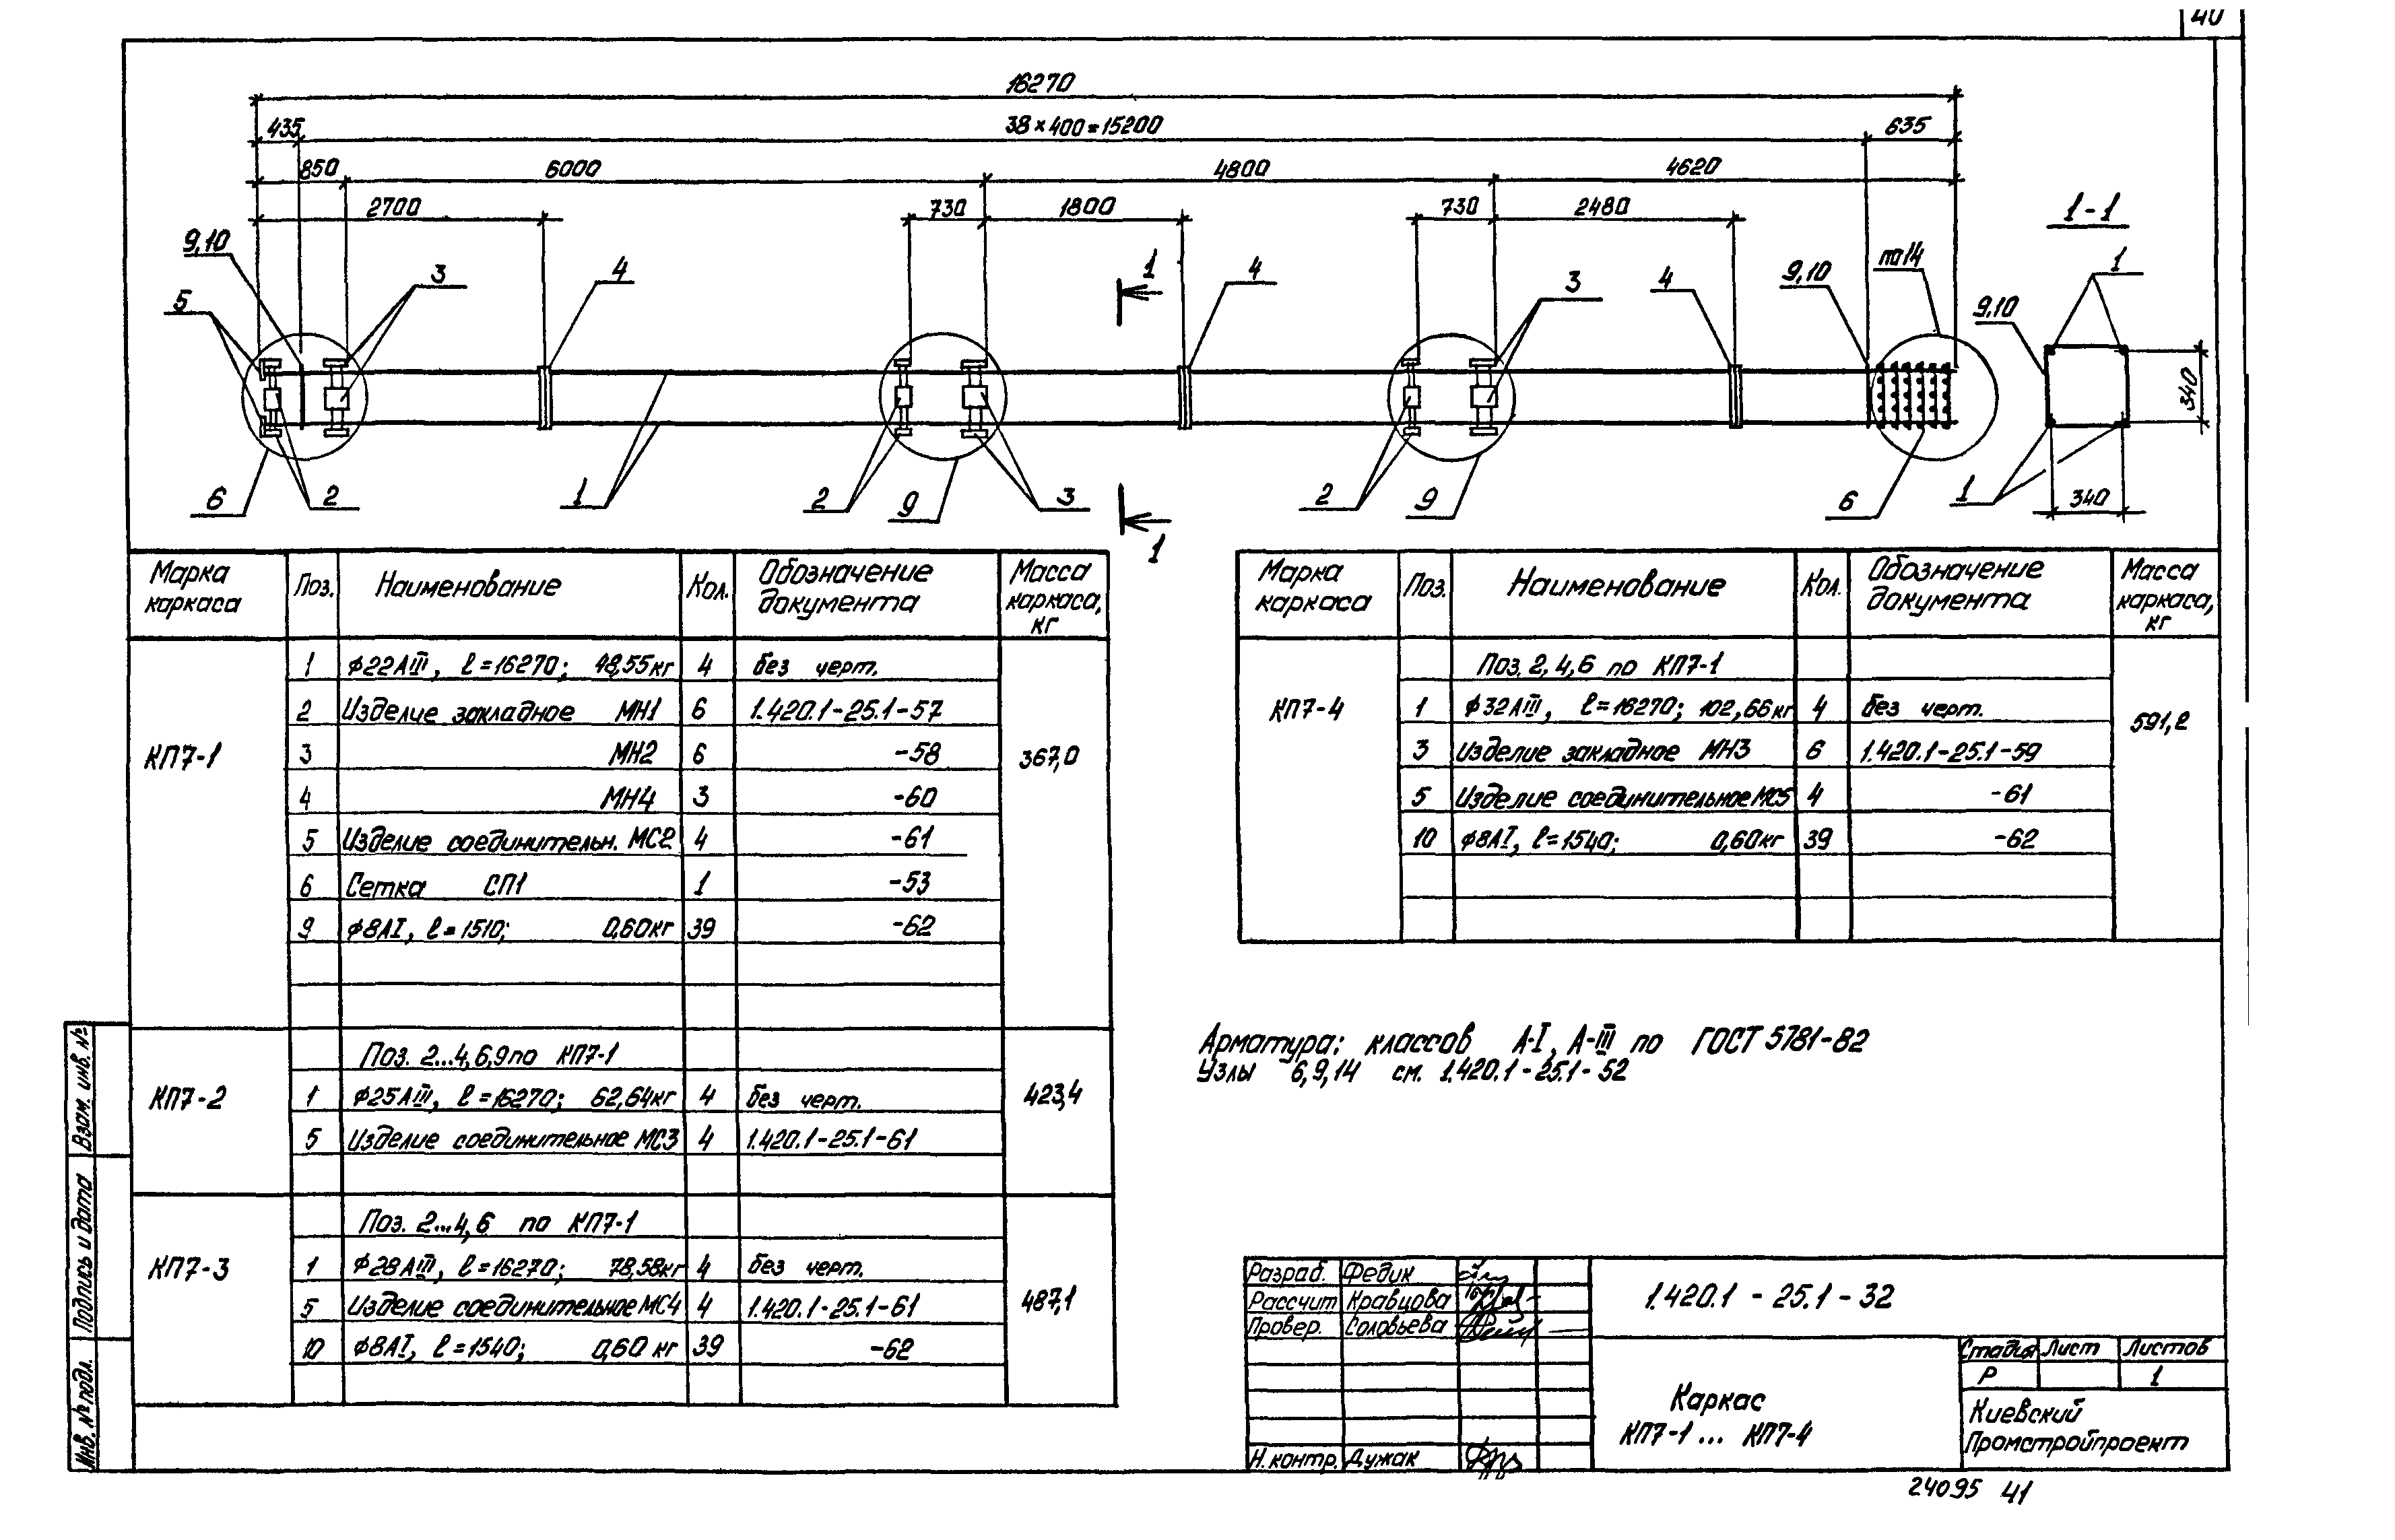 40
16270
435 38×400=15200 635
850 6000 4800 4620
2700 730 1800 730 2480
1-1
9,10 3 4 1 4 3 4 9,10 по 14 1
5 9,10
340
6 2 1 2 9 3 2 9 6 1 340
1
Марка каркаса Поз. Наименование Кол. Обозначение документа Масса каркаса, кг
КП7-1 367,0
1 ϕ22АIII, ℓ=16270; 48,55кг 4 без черт.
2 Изделие закладное МН1 6 1.420.1-25.1-57
3 МН2 6 -58
4 МН4 3 -60
5 Изделие соединительн. МС2 4 -61
6 Сетка СП1 1 -53
9 ϕ8АI, ℓ=1510; 0,60кг 39 -62
КП7-2 423,4
Поз. 2...4,6,9 по КП7-1
1 ϕ25АIII, ℓ=16270; 62,64кг 4 без черт.
5 Изделие соединительное МС3 4 1.420.1-25.1-61
КП7-3 487,1
Поз. 2...4,6 по КП7-1
1 ϕ28АIII, ℓ=16270; 78,58кг 4 без черт.
5 Изделие соединительное МС4 4 1.420.1-25.1-61
10 ϕ8АI, ℓ=1540; 0,60 кг 39 -62
Марка каркаса Поз. Наименование Кол. Обозначение документа Масса каркаса, кг
КП7-4 591,2
Поз. 2,4,6 по КП7-1
1 ϕ32АIII, ℓ=16270; 102,66кг 4 без черт.
3 Изделие закладное МН3 6 1.420.1-25.1-59
5 Изделие соединительное МС5 4 -61
10 ϕ8АI, ℓ=1540; 0,60кг 39 -62
Арматура: классов А-I, А-III по ГОСТ 5781-82
Узлы 6,9,14 см. 1.420.1-25.1-52
Взам. инв. №
Подпись и дата
Инв. № подл.
Разраб. Федик
Рассчит Кравцова
Провер. Соловьева
Н. контр. Дужак
1.420.1-25.1-32
Каркас
КП7-1... КП7-4
Стадия Лист Листов
Р 1
Киевский
Промстройпроект
24095 41